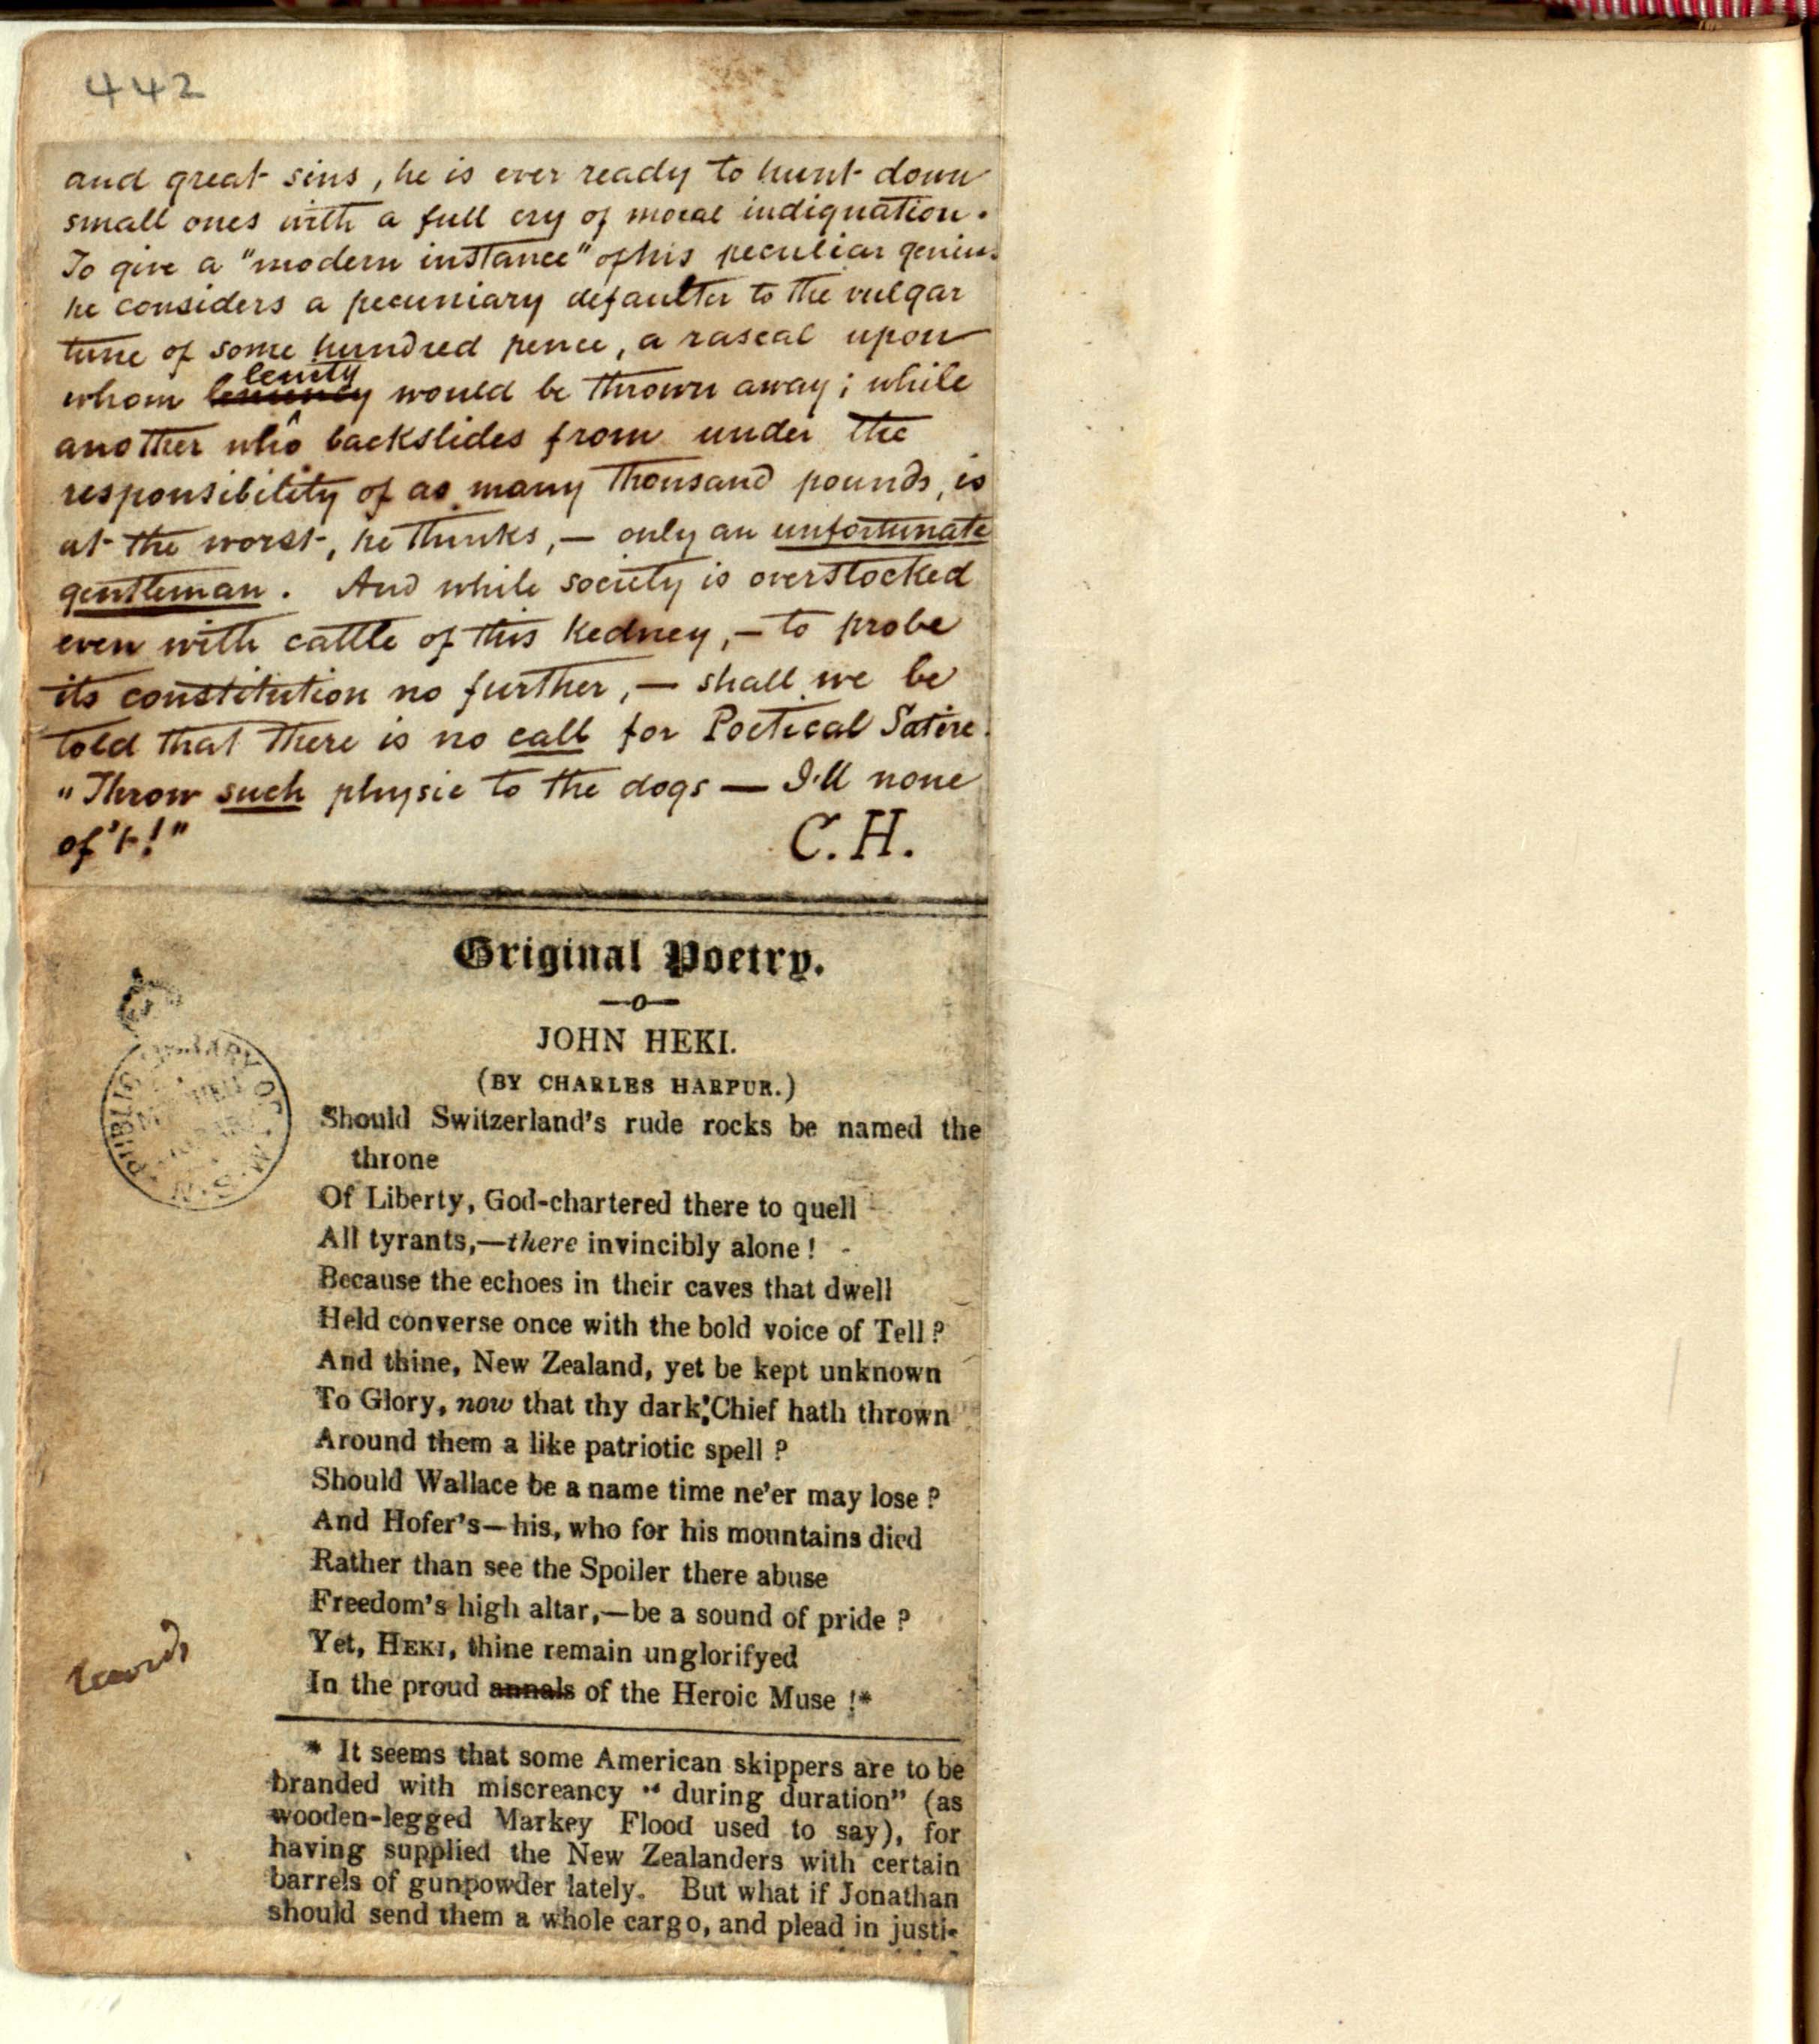 442
and great sins, he is ever ready to hunt down
small ones with a full cry of moral indignation.
To give a "modern instance" of his peculiar genius
he considers a pecuniary defaulter to the vulgar
tune of some hundred pence, a rascal upon
lenity
whom would be thrown away; while
another who backslides from under the
responsibility of as many thousand pounds, is
at the worst, he thinks, — only an unfortunate
gentleman. And while society is overstocked
even with cattle of this kedney, — to probe
its constitution no further, — shall we be
told that there is no call for Poetical Satire.
"Throw such physic to the dogs — I'll none
of't!"
C.H.
Original Poetry.
—o—
JOHN HEKI.
(BY CHARLES HARPUR.)
Should Switzerland's rude rocks be named the
throne
Of Liberty, God-chartered there to quell
All tyrants,—there invincibly alone!
Because the echoes in their caves that dwell
Held converse once with the bold voice of Tell?
And thine, New Zealand, yet be kept unknown
To Glory, now that thy dark Chief hath thrown
Around them a like patriotic spell?
Should Wallace be a name time ne'er may lose?
And Hofer's—his, who for his mountains died
Rather than see the Spoiler there abuse
Freedom's high altar,—be a sound of pride?
Yet, HEKI, thine remain unglorifyed
In the proud annals of the Heroic Muse!*
* It seems that some American skippers are to be
branded with miscreancy "during duration" (as
wooden-legged Markey Flood used to say), for
having supplied the New Zealanders with certain
barrels of gunpowder lately. But what if Jonathan
should send them a whole cargo, and plead in justi-
PUBLIC LIBRARY OF N.S.W.
MITCHELL LIBRARY